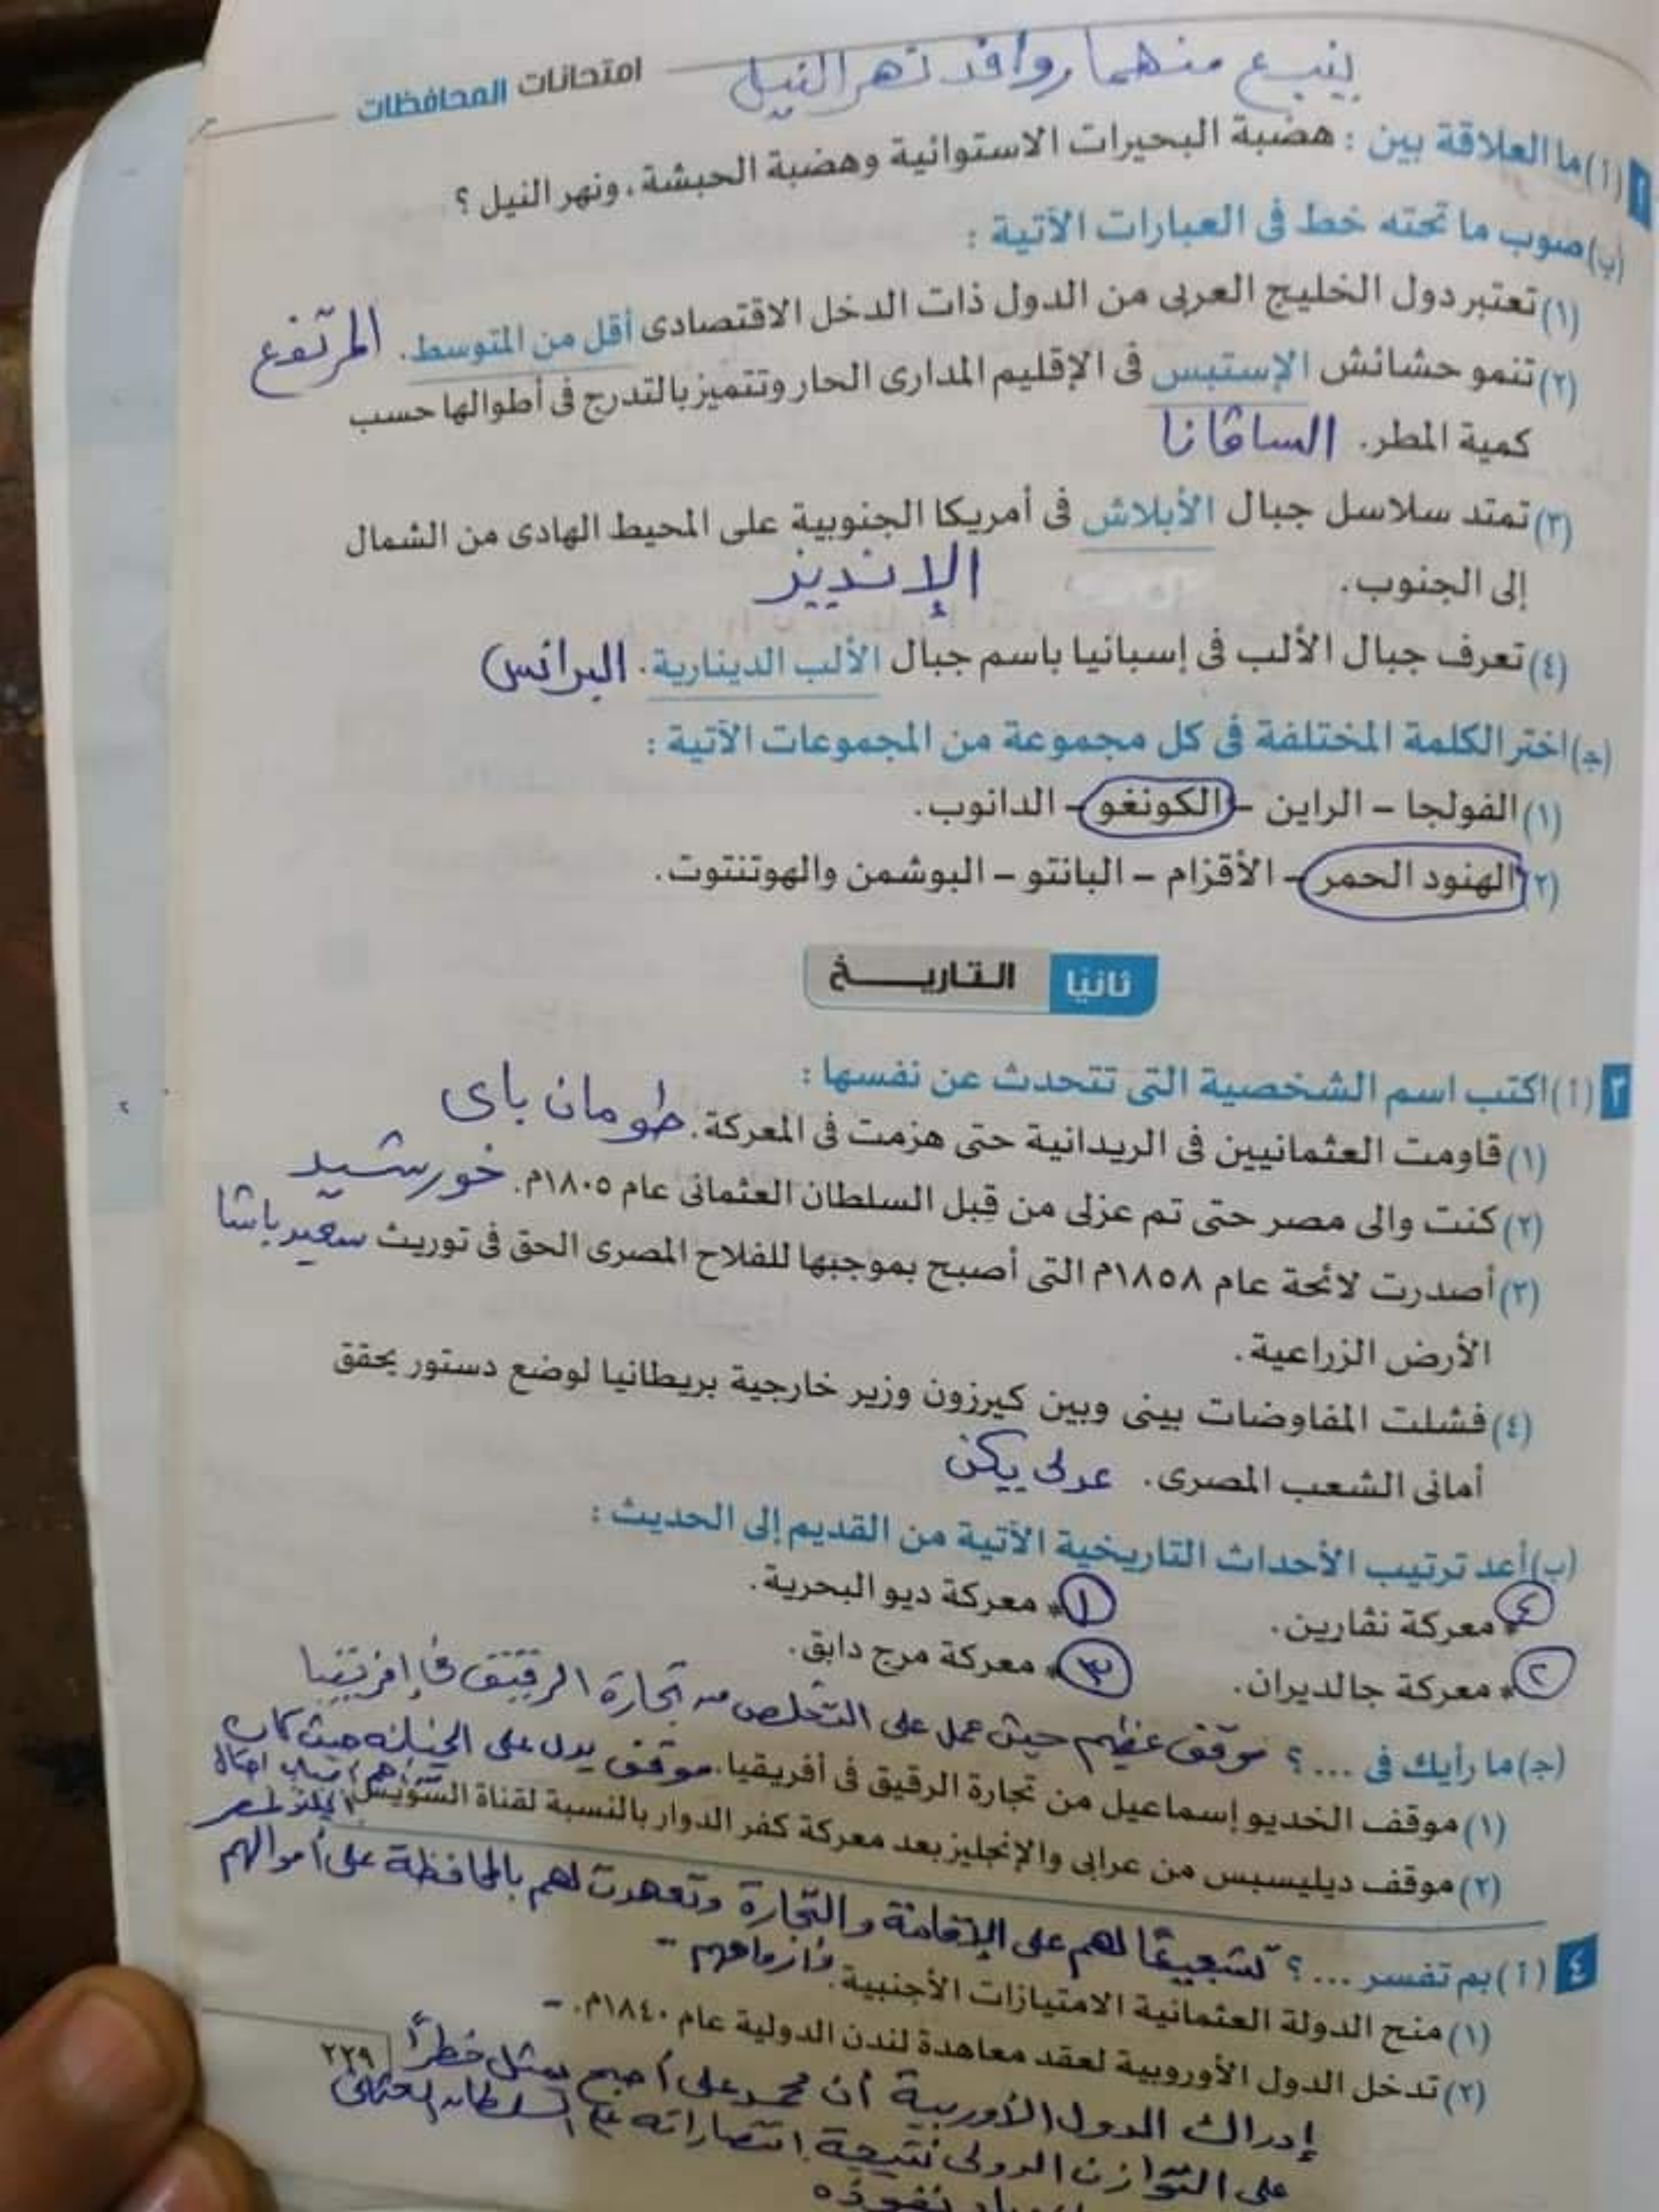 ينبع منهما روافد نهر النيل
امتحانات المحافظات
٢ (أ) ما العلاقة بين : هضبة البحيرات الاستوائية وهضبة الحبشة، ونهر النيل ؟
(ب) صوب ما تحته خط فى العبارات الآتية :
(١) تعتبر دول الخليج العربى من الدول ذات الدخل الاقتصادى أقل من المتوسط. المرتفع
(٢) تنمو حشائش الإستبس فى الإقليم المدارى الحار وتتميز بالتدرج فى أطوالها حسب
كمية المطر. الساڤانا
(٣) تمتد سلاسل جبال الأبلاش فى أمريكا الجنوبية على المحيط الهادى من الشمال
إلى الجنوب. الإنديز
(٤) تعرف جبال الألب فى إسبانيا باسم جبال الألب الدينارية. البرانس
(ج) اختر الكلمة المختلفة فى كل مجموعة من المجموعات الآتية :
(١) الفولجا – الراين – الكونغو – الدانوب.
(٢) الهنود الحمر – الأقزام – البانتو – البوشمن والهوتنتوت.
ثانيًا التاريخ
٣ (أ) اكتب اسم الشخصية التى تتحدث عن نفسها :
(١) قاومت العثمانيين فى الريدانية حتى هزمت فى المعركة. طومان باى
(٢) كنت والى مصر حتى تم عزلى من قِبل السلطان العثمانى عام ١٨٠٥م. خورشيد
(٣) أصدرت لائحة عام ١٨٥٨م التى أصبح بموجبها للفلاح المصرى الحق فى توريث سعيد باشا
الأرض الزراعية.
(٤) فشلت المفاوضات بينى وبين كيرزون وزير خارجية بريطانيا لوضع دستور يحقق
أمانى الشعب المصرى. عدلى يكن
(ب) أعد ترتيب الأحداث التاريخية الآتية من القديم إلى الحديث :
٤ * معركة نڤارين. ١ * معركة ديو البحرية.
٢ * معركة جالديران. ٣ * معركة مرج دابق.
(ج) ما رأيك فى ... ؟ موقف عظيم حيث عمل على التخلص من تجارة الرقيق فى إفريقيا
(١) موقف الخديو إسماعيل من تجارة الرقيق فى أفريقيا. موقف يدل على الخيانة حيث كان
(٢) موقف ديليسبس من عرابى والإنجليز بعد معركة كفر الدوار بالنسبة لقناة السويس.
٤ (أ) بم تفسر ... ؟ تشجيعًا لهم على الإقامة والتجارة وتعهدت لهم بالمحافظة على أموالهم
وأرواحهم
(١) منح الدولة العثمانية الامتيازات الأجنبية.
(٢) تدخل الدول الأوروبية لعقد معاهدة لندن الدولية عام ١٨٤٠م.
٢٢٩
إدراك الدول الأوربية أن محمد على أصبح يمثل خطرًا
على التوازن الدولى نتيجة انتصاراته على السلطان العثمانى
نفوذه